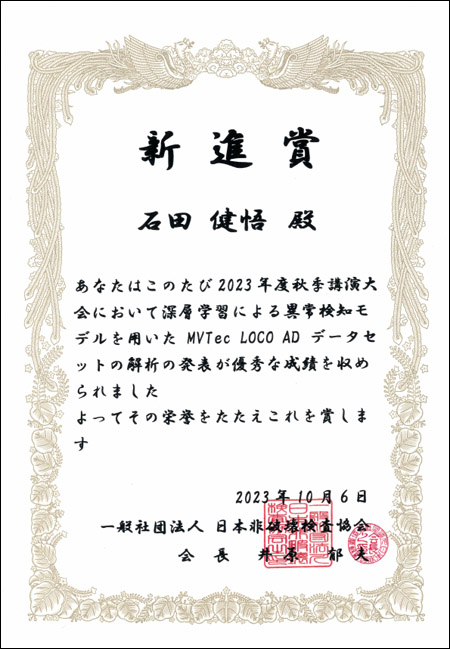 新進賞
石田 健悟 殿
あなたはこのたび2023年度秋季講演大
会において深層学習による異常検知モ
デルを用いた MVTec LOCO AD データセ
ットの解析の発表が優秀な成績を収め
られました
よってその栄誉をたたえこれを賞しま
す
2023年10月6日
一般社団法人 日本非破壊検査協会
会 長 井 原 郁 夫